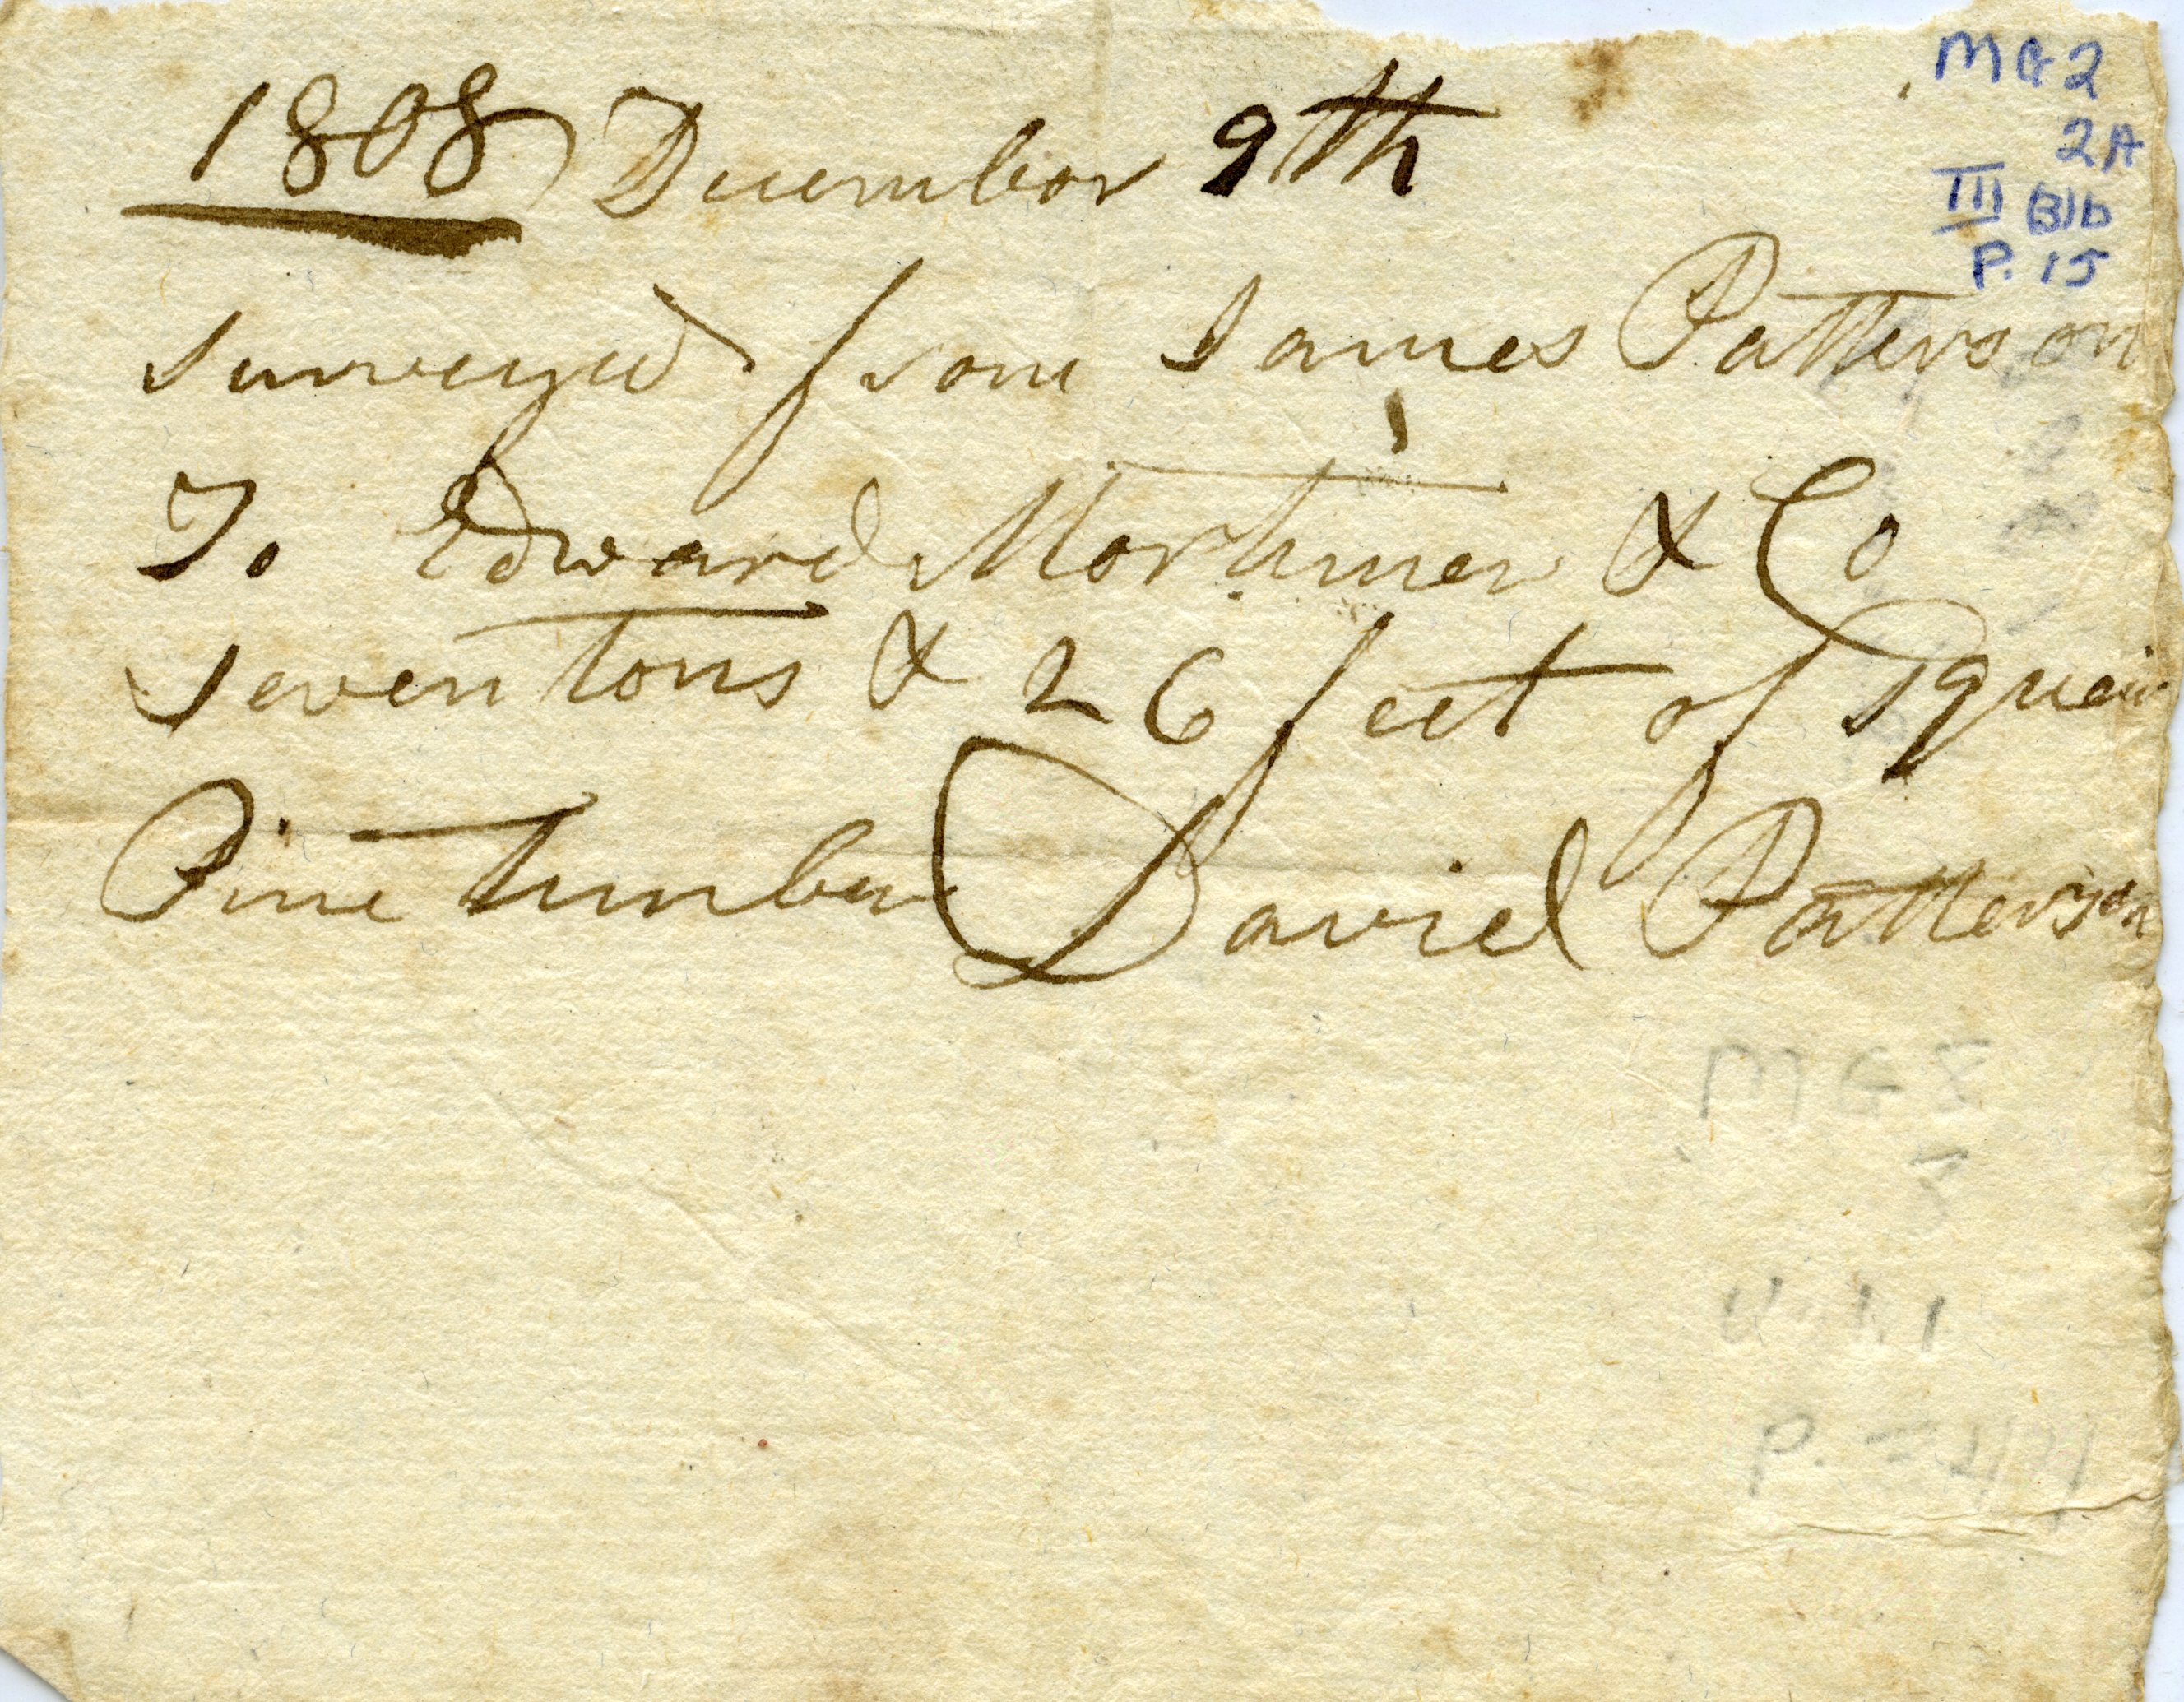 1808 December 9th
MG2
2A
III B1b
P. 15
surveyed from James Patterson
To Edward Mortimer & Co
seven tons & 26 feet of Squair
Pine timber David Patterson
MG 2
P.